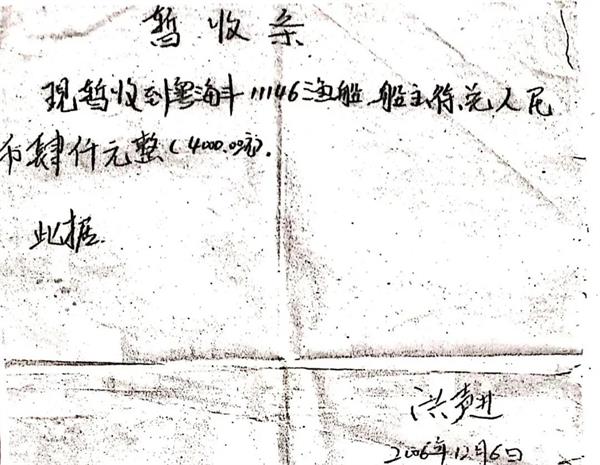 暂收条
现暂收到粤海丰11146渔船船主符兰人民
币肆仟元整(4000.00元).
此据.
洪
2006年12月6日